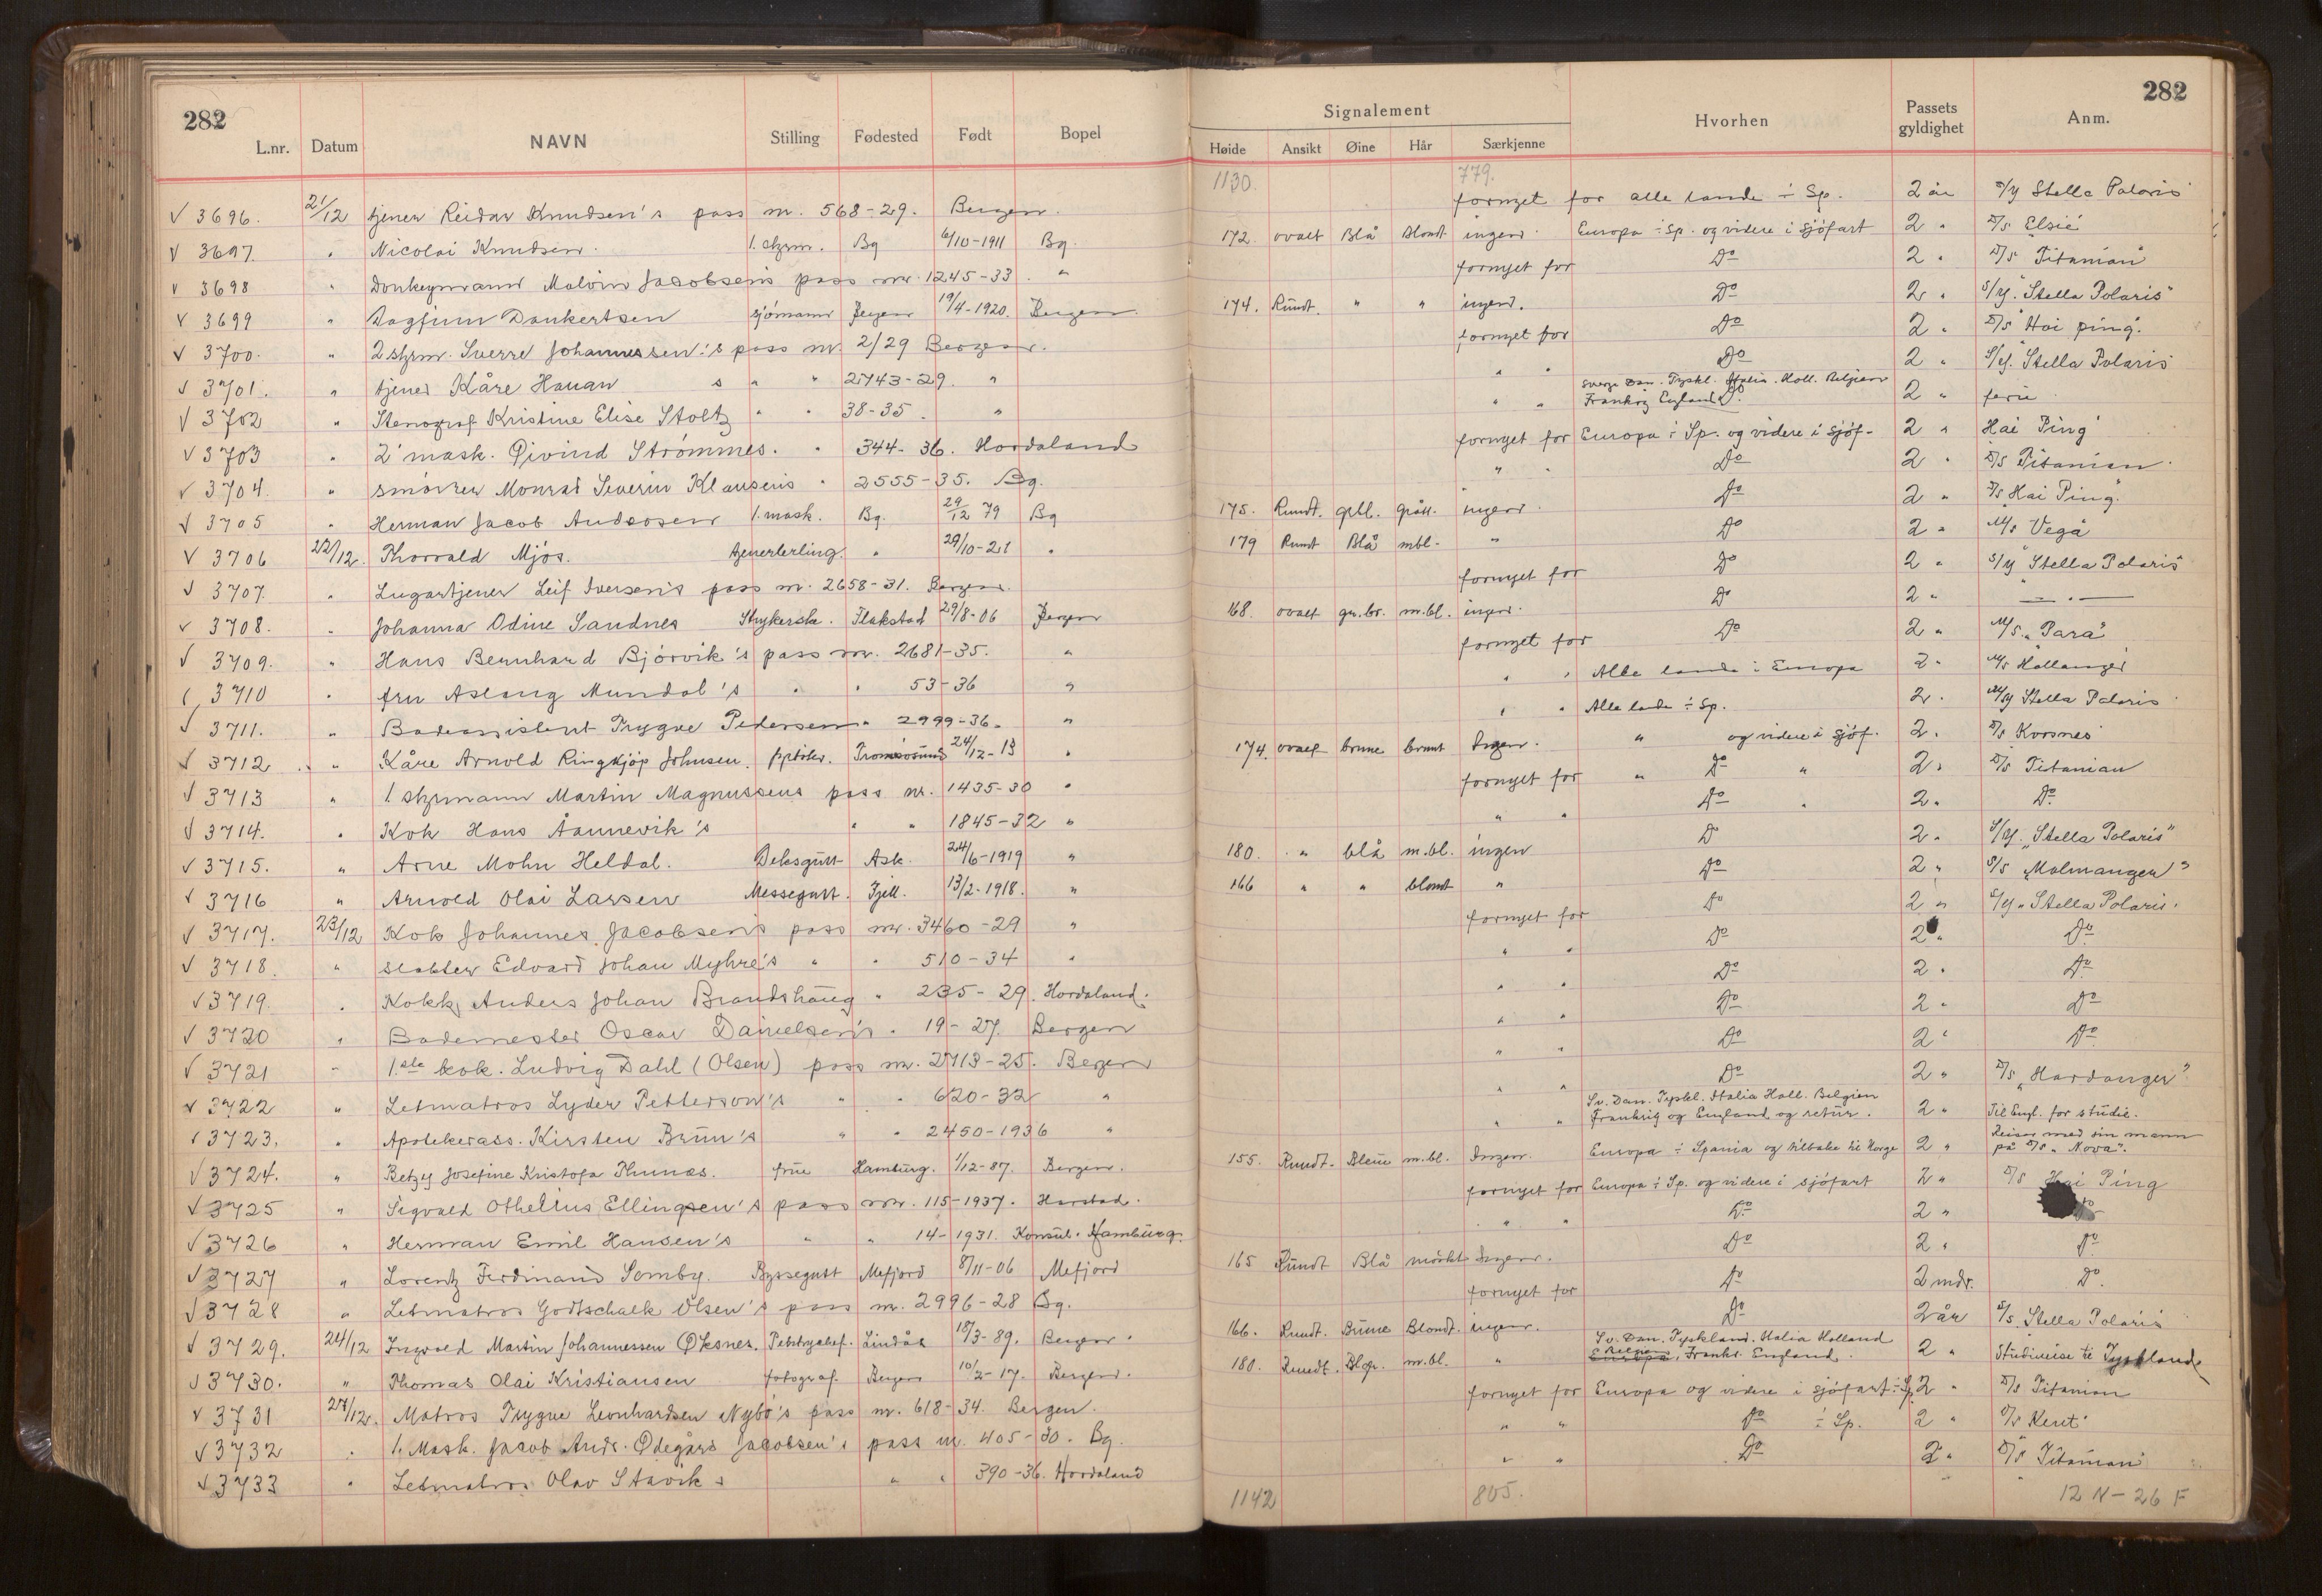 282
L.nr. Datum NAVN Stilling Fødested Født Bopel
√ 3696. 21/12 tjener Reidar Knudsen's pass nr. 568-29. Bergen.
√ 3697. " Nicolai Knudsen. 1. stzrm. Bg 6/10-1911 Bg.
√ 3698 " Donkeymann Malvin Jacobsens pass nr. 1245-33. "
√ 3699 " Dagfinn Dankertsen sjömann Bergen 19/4-1920. Bergen.
√ 3700. " 2 styrm. Sverre Johannessen's pass nr. 2/29 Bergen.
√ 3701. " tjener Kåre Hauan s " " 2743-29. "
√ 3702 " Stenograf Kristine Elise Stoltz " " 38-35. "
√ 3703 " 2' mask. Öivind Strömmes. " 344-36. Hordaland
√ 3704. " smörer Monrad Severin Klausens " 2555-35. Bg.
√ 3705 " Herman Jacob Andersen 1. mask. Bg. 29/12 79 Bg
√ 3706 22/12. Thorvald Mjös. tjenerlerling. " 29/10-21 "
√ 3707. " Lugartjener Leif Iversens pass nr. 2658-31. Bergen.
√ 3708. " Johanna Odine Sandnes Strykerske. Flakstad 29/8-06 Bergen
√ 3709. " Hans Bernhard Bjórvik's pass nr. 2681-35. "
√ 3710 " fru Aslaug Mundal's " " 53-36 "
√ 3711. " Badeassistent Trygve Pedersen " 2999-36. "
√ 3712 " Kåre Arnold Ringkjöp Johnsen. Tromsösund 24/12-13 "
√ 3713 " 1. styrmann Martin Magnussens pass nr. 1435-30 "
√ 3714. " Kok Hans Åannevik's " " 1845-32 "
√ 3715. " Arne Mohn Heldal. Deksgutt Ask. 24/6-1919 "
√ 3716 " Arnold Olai Larsen Messegutt. Fjell. 13/2-1918. "
√ 3717. 23/12 Kok Johannes Jacobsens pass nr. 3460-29 "
√ 3718. " slakter Edvard Johan Myhre's " " 510-34 "
√ 3719. " Kokk Anders Johan Brandshaug " 235-29. Hordaland.
√ 3720 " Bademester Oscar Danielsen's " 19-27. Bergen
√ 3721 " 1.ste kok. Ludvig Dahl (Olsen) pass nr. 2713-25. Bergen
√ 3722 " Letmatros Lyder Petterson's " " 620-32 "
√ 3723. " Apotekerass. Kirsten Brun's " " 2450-1936 "
√ 3724. " Betzy Josefine Kristofa Thunæs. frue Hamburg. 1/12-87. Bergen.
√ 3725 " Sigvald Othelius Ellingsen's pass nr. 115-1937. Harstad.
√ 3726 " Herman Emil Hansen's " " 14-1931. Konsul. Hamburg.
√ 3727 " Lorentz Ferdinand Somby. Byssegutt Mefjord 8/11-06 Mefjord
√ 3728 " Letmatros Godtschalk Olsen's pass nr. 2996-28 Bg.
√ 3729. 24/12 Ingvald Martin Johannessen Öksnes. Lindås 18/3-89. Bergen.
√ 3730. " Thomas Olai Kristiansen fotograf. Bergen 10/2-17. Bergen.
√ 3731 27/12. Matros Trygve Leonhardsen Nybö's pass nr. 618-34. Bergen.
√ 3732 " 1. Mask. Jacob Andr. Ödegård Jacobsen's pass nr. 405-30. Bg.
√ 3733 " Letmatros Olav Stavik s " " 390-36. Hordaland
282
Signalement Hvorhen Passets gyldighet Anm.
Høide Ansikt Øine Hår Særkjenne
1130. 779.
fornyet for alle lande ÷ Sp. 2 år S/Y Stella Polaris
172. ovalt Blå Blondt ingen. Europa ÷ Sp. og videre i sjöfart 2 " D/S Elsie
fornyet for Do 2 " D/S Titanian
174. Rundt. " " ingen. Do 2 " S/Y. "Stella Polaris"
fornyet for Do 2 " D/S "Hai ping".
" " Do 2 " S/Y. Stella Polaris
" " Sverge Dan. Tyskl. Italia. Holl. Belgien
Frankrig England 2 " ferie
fornyet for Europa ÷ Sp. og videre i sjöf- 2 " Hai Ping
" " Do 2 " D/S Titanian.
175. Rundt. gråbl. grått. ingen. Do 2 " D/S Hai Ping".
179 Rundt Blå mbl. " Do 2 " M/S Vega
fornyet for Do 2 " S/Y Stella Polaris"
168. ovalt gr.br. m.bl. ingen. Do 2 " — " —
fornyet for Do 2 " M/S. "Para"
" " Alle lande i Europa 2 " M/S Hallanger
" " Alle lande ÷ Sp. 2 " M/Y Stella Polaris
174. ovalt brune brunt Ingen. " og videre i sjöf. 2. D/S Korsnes
fornyet for " Do " 2. D/S Titanian
" " Do " 2. Do
180. " blå m.bl. ingen Do 2 " S/Y. "Stella Polaris"
166 " " blondt " Do 2 " D/S "Malmanger"
fornyet for Do 2 " S/Y "Stella Polaris.
" " Do 2 " Do
" " Do 2 " Do
" " Do 2 " Do
" " Do 2 " Do
" " Do 2 " D/S "Hardanger"
" " Sv. Dan. Tyskl. Italia Holl. Belgien
Frankrig og England og retur. 2 " Til Engl. for studie.
155. Rundt. Bleue m.bl. Ingen. Europa ÷ Spania og tilbake til Norge 2 " Reiser med sin mann
på D/S "Nova".
fornyet for Europa ÷ Sp. og videre i sjöfart 2 " D/S Hai Ping
" " Do 2 " Do
165 Rundt Blå mörkt Ingen. Do 2 " Do
fornyet for Do 2 mdr. Do.
166. Rundt. Brune Blondt. ingen. Do 2 år S/S. Stella Polaris
180. Rundt. Blgr. m.bl. " Sv. Dan. Tyskland. Italia Holland
Belgien, Frankr. England. 2 " Studiereise til Tyskland
fornyet for Europa og videre i sjöfart ÷ Sp. 2 " D/S Titanian
" " Do ÷ Sp. 2 " D/S Kent
" " Do 2 " D/S Titanian
1142 805. 12 N - 26 F